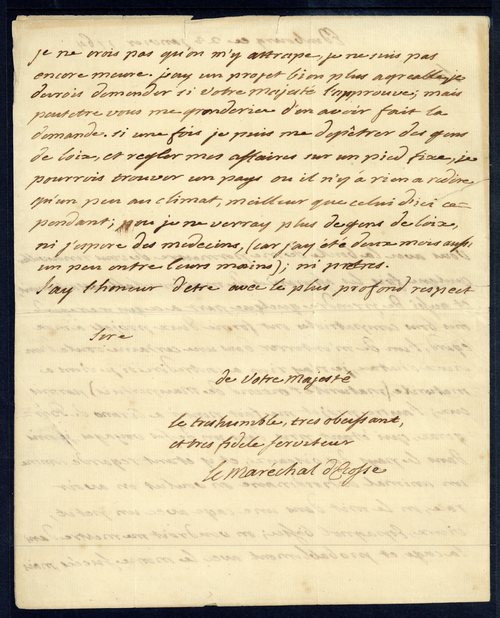 je ne crois pas qu'on m'y attrape, je ne suis pas
encore meure. j'ay un projet bien plus agreable, je
devrois demander si votre Majesté l'approuve; mais
peutetre vous me gronderiez d'en avoir fait la
demande. si une fois je puis me depêtrer des gens
de loix, et regler mes affaires sur un pied fixe, je
pourrois trouver un pays ou il n'y a rien a redire,
qu'un peu au climat, meilleur que celui d'ici ce-
pendant; ou je ne verray plus de gens de loix,
ni j'espere des medecins, (car j'ay été deux mois aussi
un peu entre leurs mains); ni pretres.
J'ay l'honneur d'etre avec le plus profond respect
Sire
de Votre Majesté
le tres humble, tres obeissant,
et tres fidele serviteur
le Maréchal d'Ecosse